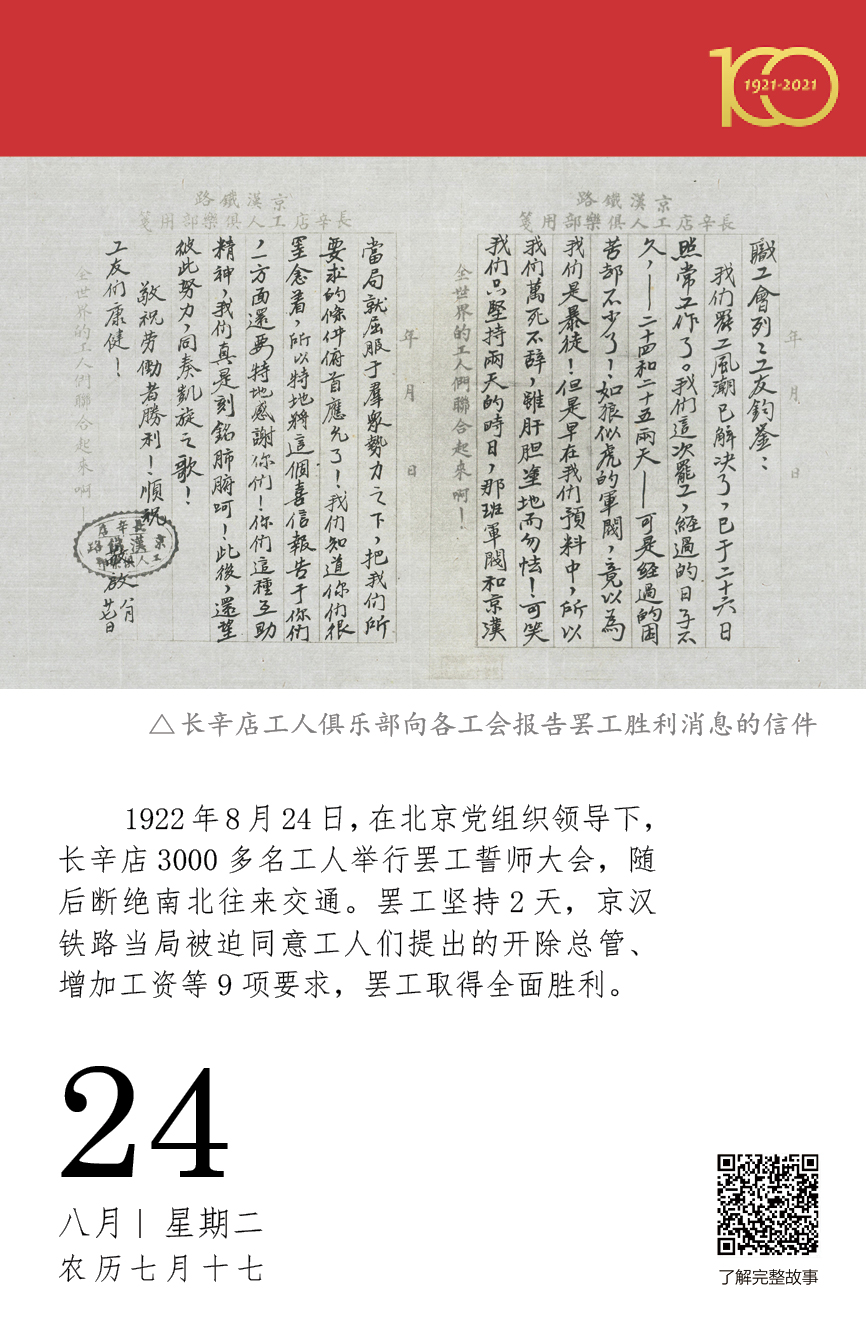 100
1921-2021
京漢鐵路
長辛店工人俱樂部用箋
職工會列之工友鈞鉴：
我们罷工風潮已解决了，已于二十六日
照常工作了。我们這次罷工，經過的日子不
久，——二十四和二十五兩天——可是經過的困
苦却不少了！如狼似虎的軍閥，竟以為
我们是暴徒！但是早在我们預料中，所以
我们萬死不辞，雖肝胆塗地而勿怯！可笑
我们只堅持兩天的時日，那班軍閥和京漢
年 月 日
全世界的工人們聯合起來啊！
京漢鐵路
長辛店工人俱樂部用箋
當局就屈服于羣衆勢力之下，把我们所
要求的條件俯首應允了！我们知道你们很
罣念着，所以特地將這個喜信報告于你们
，一方面還要特地感謝你们！你们這種互助
精神，我们真是刻銘肺腑呵！此後，還望
彼此努力，同奏凱旋之歌！
敬祝劳働者勝利！順祝
工友们康健！
八月廿七日
年 月 日
全世界的工人們聯合起來啊！
長辛店
京漢鐵路
△长辛店工人俱乐部向各工会报告罢工胜利消息的信件
1922年8月24日，在北京党组织领导下，
长辛店3000多名工人举行罢工誓师大会，随
后断绝南北往来交通。罢工坚持2天，京汉
铁路当局被迫同意工人们提出的开除总管、
增加工资等9项要求，罢工取得全面胜利。
24
八月| 星期二
农历七月十七
了解完整故事